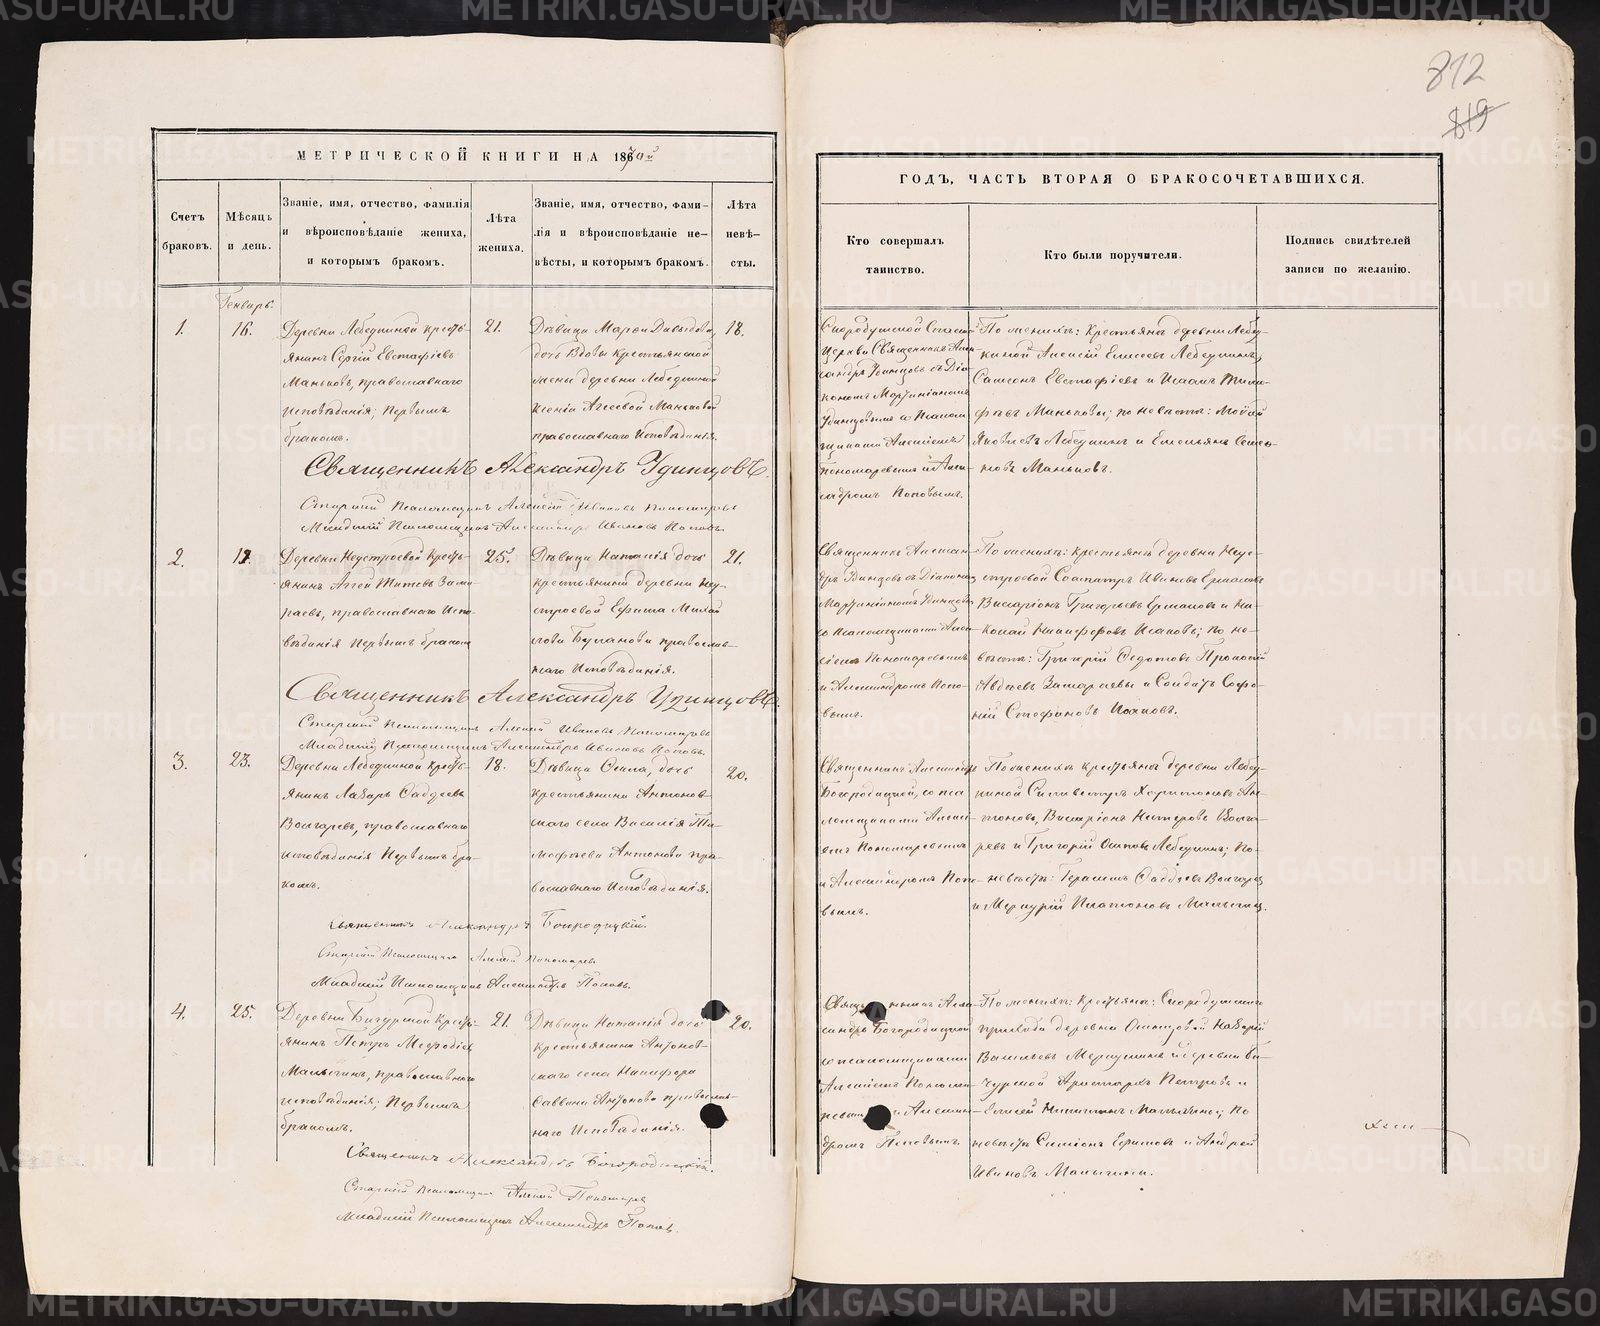 812
819
МЕТРИЧЕСКОЙ КНИГИ НА 1870й
ГОДЪ, ЧАСТЬ ВТОРАЯ О БРАКОСОЧЕТАВШИХСЯ.
Счетъ
браковъ.
Мѣсяцъ
и день.
Званіе, имя, отчество, фамилія
и вѣроисповѣданіе жениха,
и которымъ бракомъ.
Лѣта
жениха.
Званіе, имя, отчество, фами-
лія и вѣроисповѣданіе не-
вѣсты, и которымъ бракомъ.
Лѣта
невѣ-
сты.
Кто совершалъ
таинство.
Кто были поручители.
Подпись свидѣтелей
записи по желанію.
Генварь.
1.
16.
Деревни Лебедкиной кресть-
янинъ Сергій Евстафіевъ
Маньковъ, православнаго
исповѣданія; первымъ
бракомъ.
21.
Дѣвица Марѳа Давыдова,
дочь вдовы крестьянской
жены деревни Лебедкиной
Ксеніи Агеевой Маньковой
православнаго исповѣданія.
18.
Скородумской
церкви Священникъ Алек-
сандръ Удинцовъ съ Діа-
кономъ Мартиніаномъ
Удинцовымъ и Псалом-
щиками Алексіемъ
Пономаревымъ и Алек-
сандромъ Поповымъ.
По женихѣ: крестьяне деревни Лебед-
киной Алексій Елисеевъ Лебедкинъ,
Самсонъ Евстафіевъ и Исаакъ
Маньковы; по невѣстѣ: Моѵсей
Яковлевъ Лебедкинъ и Емельянъ Семе-
новъ Маньковъ.
Священникъ Александръ Удинцовъ.
Старшій Псаломщикъ Алексій Ивановъ Пономаревъ
Младшій Псаломщикъ Александръ Ивановъ Поповъ.
2.
Деревни Неустроевой кресть-
янинъ Аггей Титовъ Зама-
раевъ, православнаго испо-
вѣданія первымъ бракомъ
25.
Дѣвица Наталія дочь
крестьянина деревни Неу-
строевой Ефима Михай-
лова Буланова православ-
наго исповѣданія.
21.
Священникъ Алексан-
дръ Удинцовъ съ Діакономъ
Мартиніаномъ Удинцовымъ
со псаломщиками Алек-
сіемъ Пономаревымъ
и Александромъ Попо-
вымъ.
По женихѣ: крестьяне деревни Неу-
строевой Сосипатръ Ивановъ Ермаковъ
Виссаріонъ Григорьевъ Ермаковъ и Ни-
колай Никифоровъ Исаковъ; по не-
вѣстѣ: Григорій Ѳедотовъ Прокопій
Авдѣевъ Замараевы и Солдатъ Софо-
ній Стефановъ Исаковъ.
Священникъ Александръ Удинцовъ.
Старшій Псаломщикъ Алексій Ивановъ Пономаревъ
Младшій Псаломщикъ Александръ Ивановъ Поповъ.
3.
23.
Деревни Лебедкиной кресть-
янинъ Лазарь Ѳаддеевъ
Волгаревъ, православнаго
исповѣданія первымъ бра-
комъ.
18.
Дѣвица Ѳекла, дочь
крестьянина Антонов-
скаго села Василія Ти-
моѳѣева Антонова пра-
вославнаго исповѣданія.
20.
Священникъ Александръ
Богородицкій, со пса-
ломщиками Алексі-
емъ Пономаревымъ
и Александромъ Попо-
вымъ.
По женихѣ крестьяне деревни Лебед-
киной Сильвестръ Харитоновъ Ан-
тоновъ, Виссаріонъ Волга-
ревъ и Григорій Осиповъ Лебедкинъ; по-
невѣстѣ: Герасимъ Ѳаддѣевъ Волгаревъ
и Меркурій Платоновъ Малыгинъ.
Священникъ Александръ Богородицкій.
Старшій Псаломщикъ Алексій Пономаревъ
Младшій Псаломщикъ Александръ Поповъ.
4.
25.
Деревни Бичурской кресть-
янинъ Петръ Меѳодіевъ
Малыгинъ, православнаго
исповѣданія; первымъ
бракомъ.
21.
Дѣвица Наталія дочь
крестьянина Антонов-
скаго села Никифора
Саввина Антонова православ-
наго исповѣданія.
20.
Священникъ Алек-
сандръ Богородицкій
со псаломщиками
Алексіемъ Понома-
ревымъ и Алексан-
дромъ Поповымъ.
По женихѣ: крестьяне: Скородумскаго
прихода деревни Осинцовой Назарій
Васильевъ Меркушинъ и деревни Би-
чурской Аристархъ Петровъ и
Елисей Никитинъ Малыгины; по
невѣстѣ Симеонъ Ефимовъ и Андрей
Ивановъ Малыгины.
Священникъ Александръ Богородицкій.
Старшій Псаломщикъ Алексій Пономаревъ
Младшій Псаломщикъ Александръ Поповъ.
METRIKI.GASO-URAL.RU